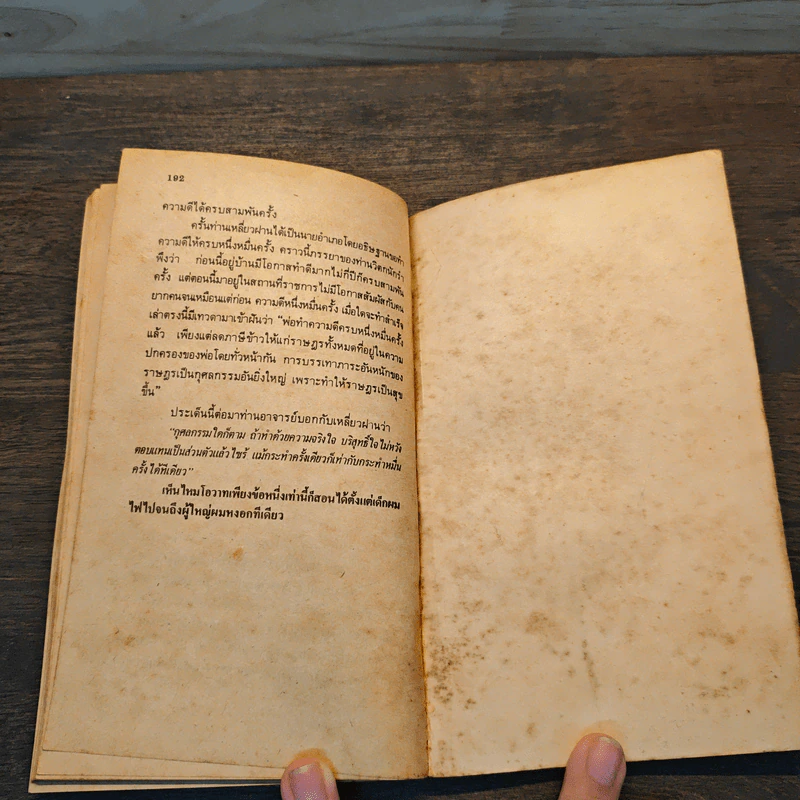 192
ความดีได้ครบสามพันครั้ง
ครั้นท่านเหลี่ยวฝานได้เป็นนายอำเภอโดยอธิษฐานขอทำ
ความดีให้ครบหนึ่งหมื่นครั้ง คราวนี้ภรรยาของท่านวิตกนักรำ
พึงว่า ก่อนนี้อยู่บ้านมีโอกาสทำดีมากไม่กี่ปีก็ครบสามพัน
ครั้ง แต่ตอนนี้มาอยู่ในสถานที่ราชการไม่มีโอกาสสัมผัสกับคน
ยากคนจนเหมือนแต่ก่อน ความดีหนึ่งหมื่นครั้ง เมื่อใดจะทำสำเร็จ
เล่าตรงนี้มีเทวดามาเข้าฝันว่า “พ่อทำความดีครบหนึ่งหมื่นครั้ง
แล้ว เพียงแต่ลดภาษีข้าวให้แก่ราษฎรทั้งหมดที่อยู่ในความ
ปกครองของพ่อโดยทั่วหน้ากัน การบรรเทาภาระอันหนักของ
ราษฎรเป็นกุศลกรรมอันยิ่งใหญ่ เพราะทำให้ราษฎรเป็นสุข
ขึ้น”
ประเด็นนี้ต่อมาท่านอาจารย์บอกกับเหลี่ยวฝานว่า
“กุศลกรรมใดก็ตาม ถ้าทำด้วยความจริงใจ บริสุทธิ์ใจไม่หวัง
ตอบแทนเป็นส่วนตัวแล้วไซร้ แม้กระทำครั้งเดียวก็เท่ากับกระทำหมื่น
ครั้งได้ทีเดียว”
เห็นไหมโอวาทเพียงข้อหนึ่งเท่านี้ก็สอนได้ตั้งแต่เด็กผม
ไฟไปจนถึงผู้ใหญ่ผมหงอกทีเดียว